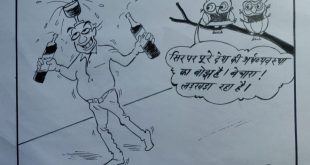 सिर पर पूरे देश की अर्थव्यवस्था
का बोझ है ! बेचारा !
लड़खड़ा रहा है !